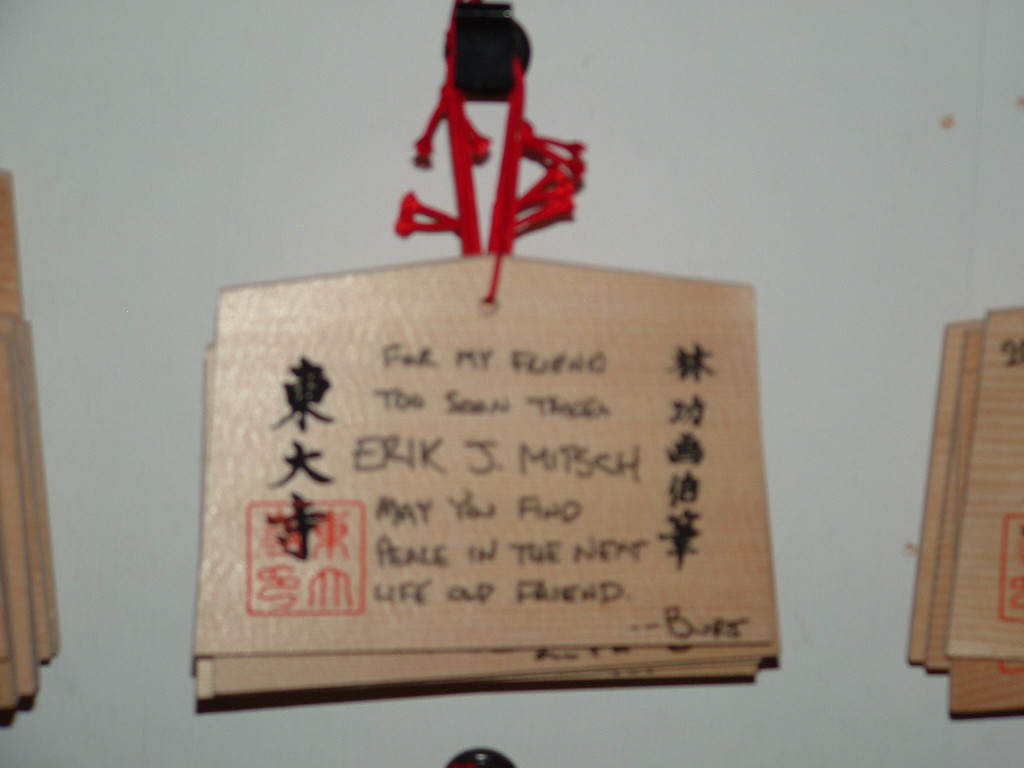 東大寺
FOR MY FRIEND
TOO SOON TAKEN
ERIK J. MITSCH
MAY YOU FIND
PEACE IN THE NEXT
LIFE OLD FRIEND.
林功画伯筆